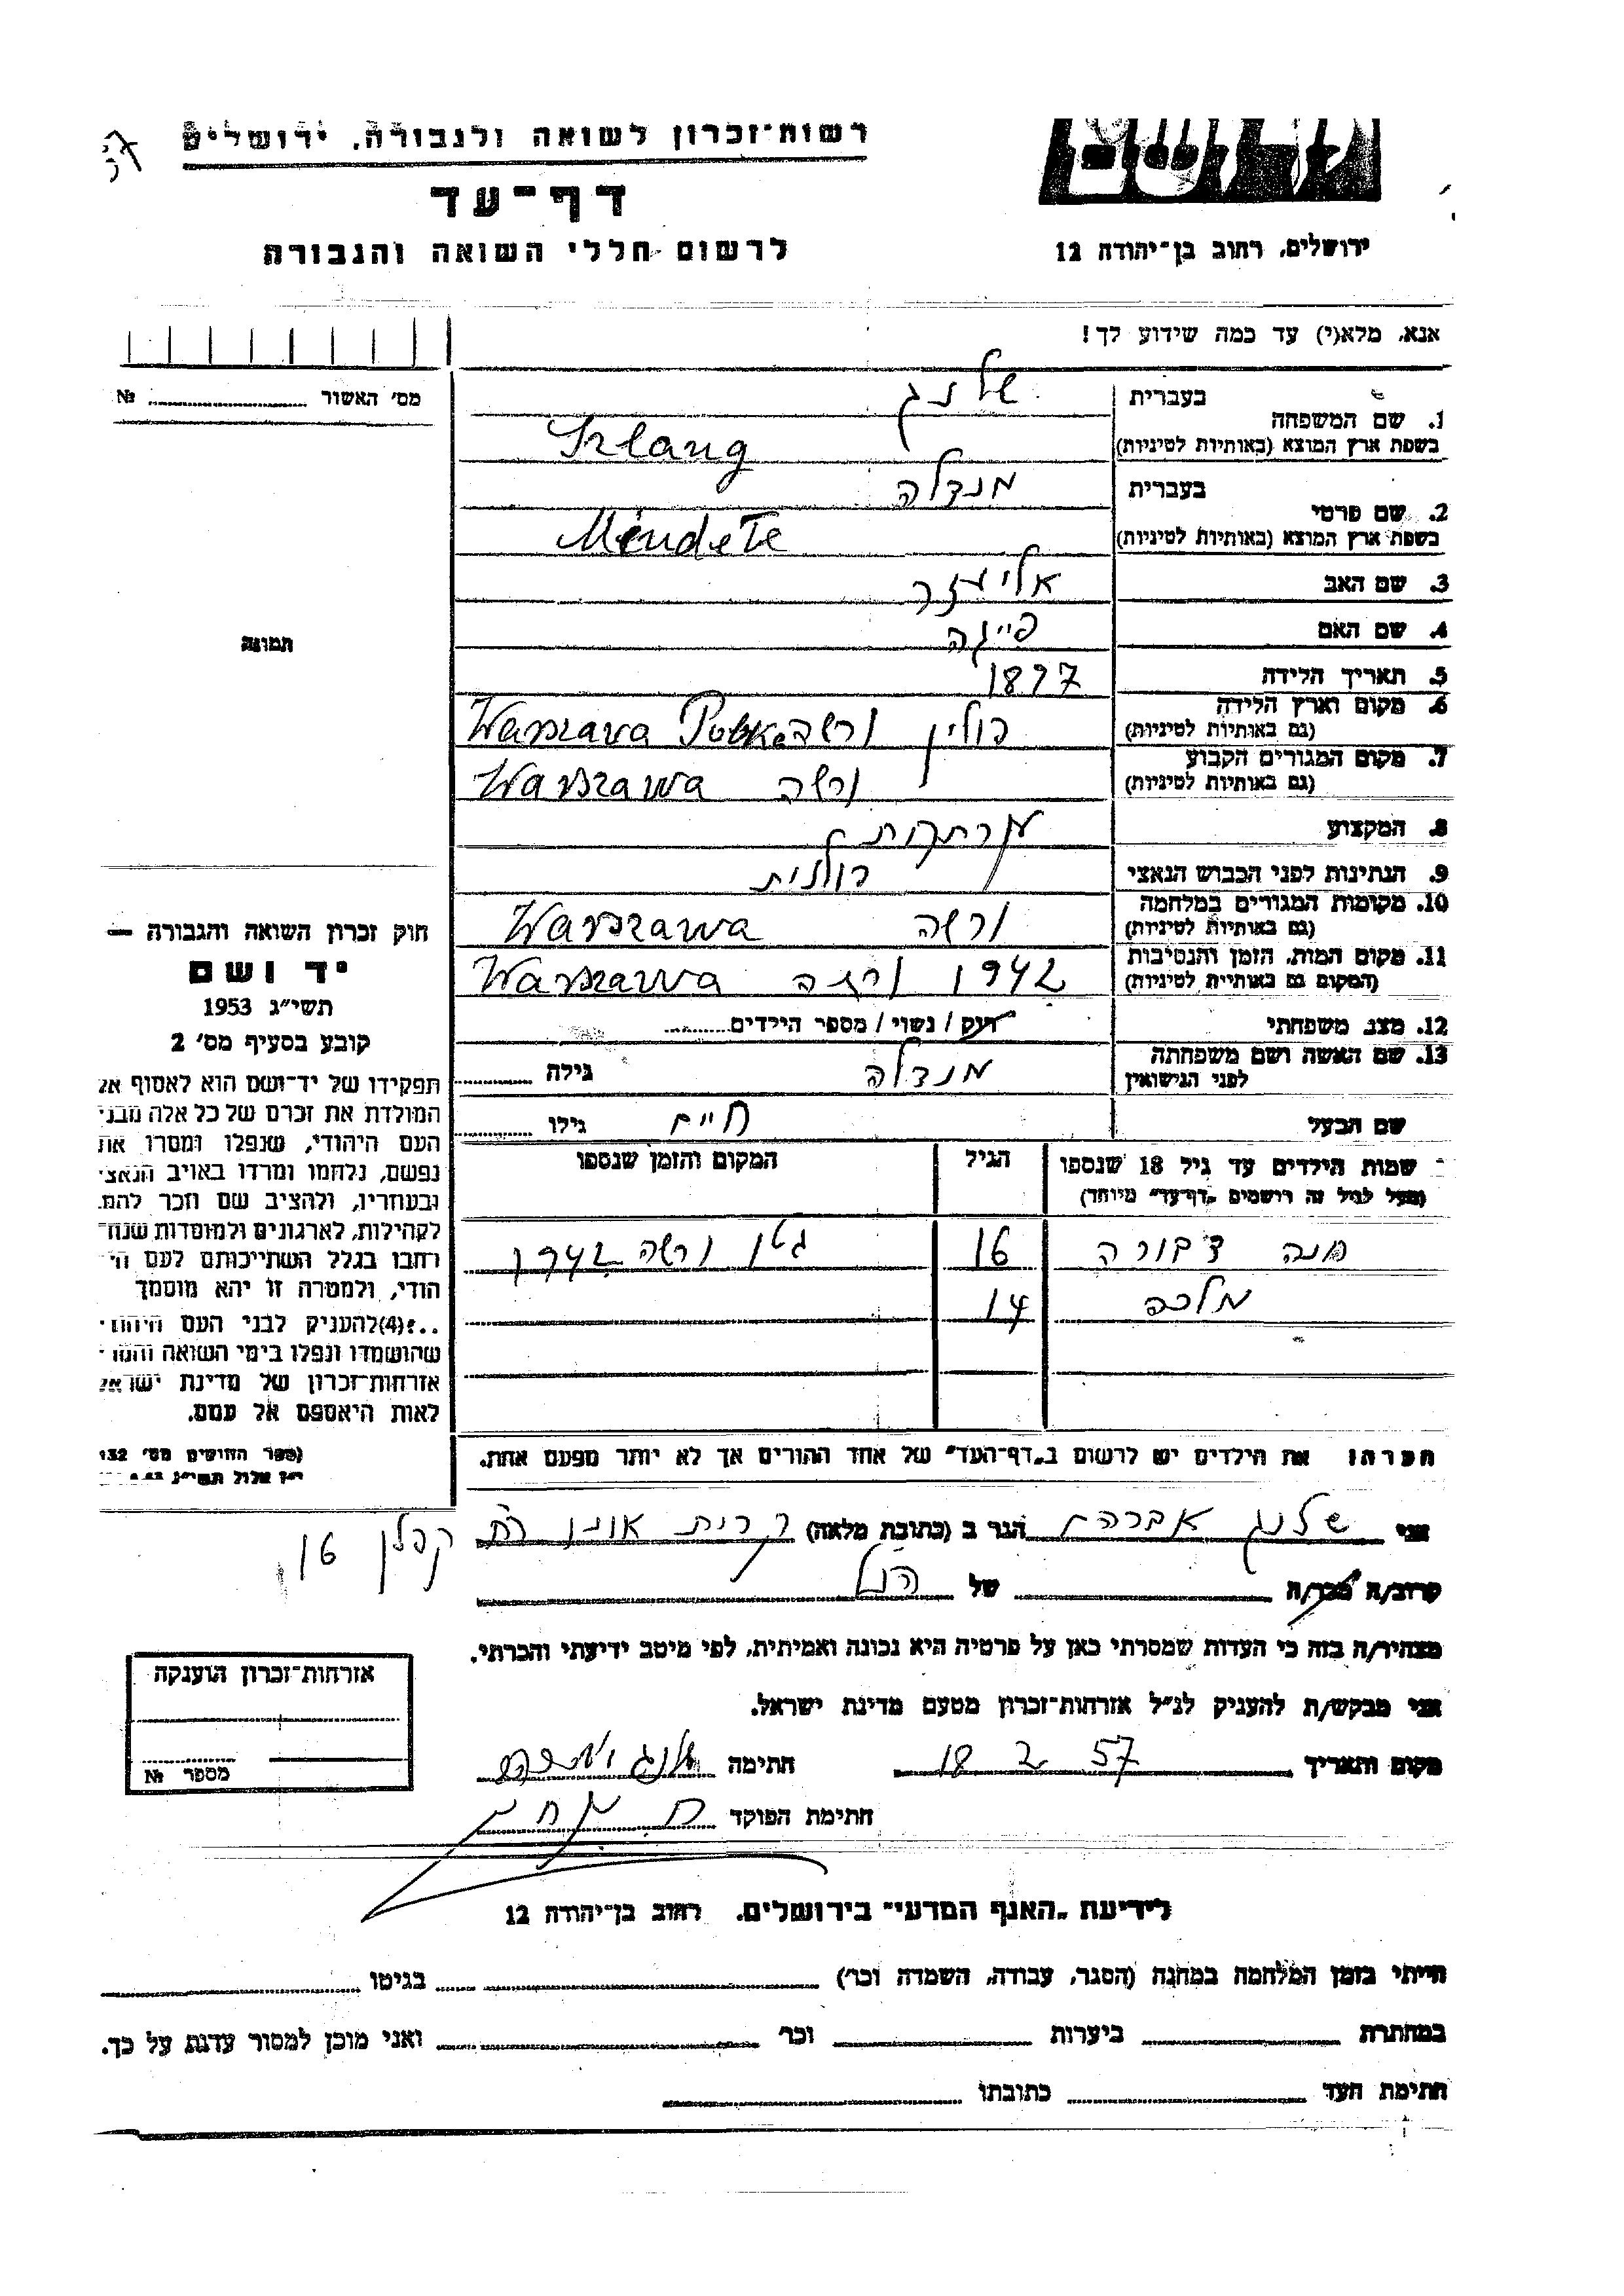 רשות־זכרון לשואה ולגבורה, ירושלים
דף־עד
לרשום חללי השואה והגבורה
ירושלים, רחוב בן־יהודה 12
אנא, מלא(י) עד כמה שידוע לך!
מס' האשור № 
1. שם המשפחה
בעברית שלנג
בשפת ארץ המוצא (באותיות לטיניות) Szlang
2. שם פרטי
בעברית מנדלה
בשפת ארץ המוצא (באותיות לטיניות)
3. שם האב אליעזר
4. שם האם פייגה
5. תאריך הלידה 1897
6. מקום וארץ הלידה
(גם באותיות לטיניות) פולין ורשה Warszawa Polska
7. מקום המגורים הקבוע
(גם באותיות לטיניות) ורשה Warszawa
8. המקצוע
9. הנתינות לפני הכבוש הנאצי פולנית
10. מקומות המגורים במלחמה
(גם באותיות לטיניות) ורשה Warszawa
11. מקום המות, הזמן והנסיבות
(המקום גם באותיות לטיניות) 1942 ורשה Warszawa
12. מצב משפחתי רוק / נשוי / מספר הילדים
13. שם האשה ושם משפחתה
לפני הנישואין מנדלה גילה
שם הבעל חיים גילו
שמות הילדים עד גיל 18 שנספו
(מעל לגיל זה רושמים "דף־עד" מיוחד)
הגיל
המקום והזמן שנספו
חנה דבורה 16 גטו ורשה 1942
מלכה 14
תמונה
חוק זכרון השואה והגבורה —
יד ושם
תשי"ג 1953
קובע בסעיף מס' 2
תפקידו של יד־ושם הוא לאסוף אל
המולדת את זכרם של כל אלה מבני
העם היהודי, שנפלו ומסרו את
נפשם, נלחמו ומרדו באויב הנאצי
ובעוזריו, ולהציב שם וזכר להם,
לקהילות, לארגונים ולמוסדות שנח־
רחבו בגלל השתייכותם לעם הי־
הודי, ולמטרה זו יהא מוסמך
...(4) להעניק לבני העם היהודי
שהושמדו ונפלו בימי השואה והמרי
אזרחות־זכרון של מדינת ישראל
לאות היאספם אל עמם.
(ספר החוקים מס' 132
הערה את הילדים יש לרשום ב"דף־העד" של אחד ההורים אך לא יותר מפעם אחת.
אני שלנג אברהם הגר ב (כתובת מלאה) קרית אונו רח קפלן 16
קרוב/ה מכר/ה של הנ"ל
מצהיר/ה בזה כי העדות שמסרתי כאן על פרטיה היא נכונה ואמיתית, לפי מיטב ידיעתי והכרתי.
אני מבקש/ת להעניק לנ"ל אזרחות־זכרון מטעם מדינת ישראל.
מקום ותאריך 18 2 57 חתימה
חתימת הפוקד
אזרחות־זכרון הוענקה
מספר №
לידיעת "האגף המדעי" בירושלים, רחוב בן־יהודה 12
הייתי בזמן המלחמה במחנה (הסגר, עבודה, השמדה וכו') בגיטו
במחתרת ביערות וכו' ואני מוכן למסור עדות על כך.
חתימת העד כתובתו